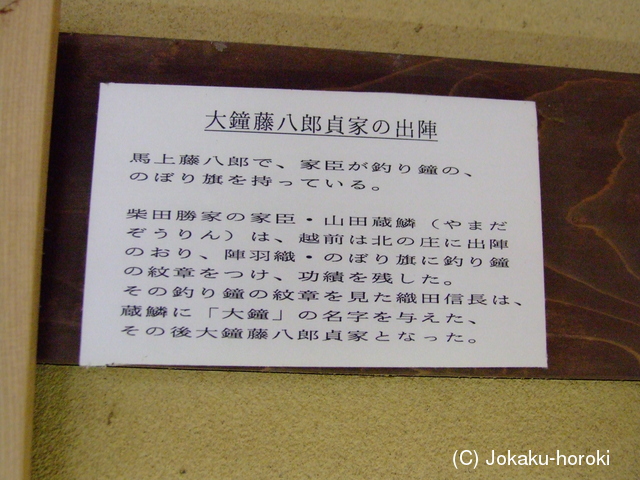 大鐘藤八郎貞家の出陣
馬上藤八郎で、家臣が釣り鐘の、
のぼり旗を持っている。
柴田勝家の家臣・山田蔵鱗（やまだ
ぞうりん）は、越前は北の庄に出陣
のおり、陣羽織・のぼり旗に釣り鐘
の紋章をつけ、功績を残した。
その釣り鐘の紋章を見た織田信長は、
蔵鱗に「大鐘」の名字を与えた、
その後大鐘藤八郎貞家となった。
(C) Jokaku-horoki